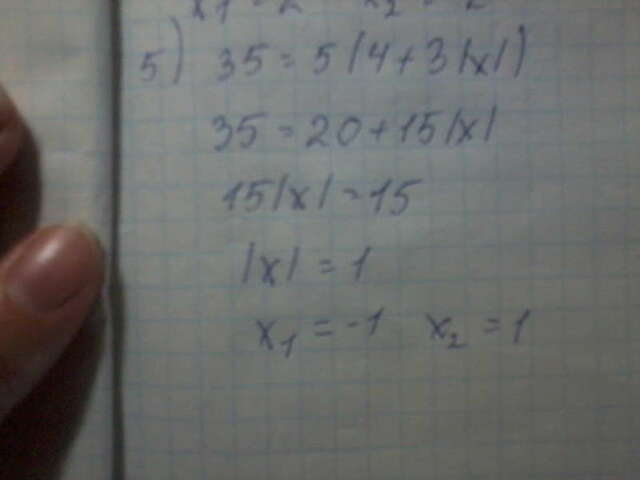 5) 35 = 5(4 + 3|x|)
35 = 20 + 15|x|
15|x| = 15
|x| = 1
x₁ = -1 x₂ = 1